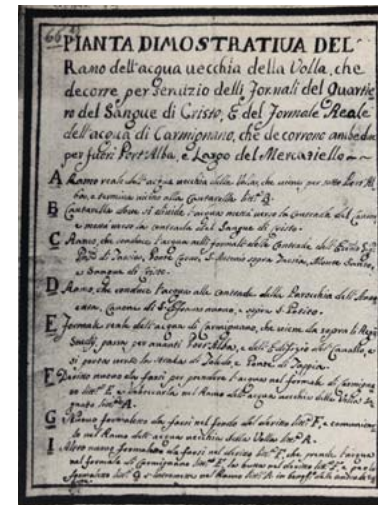 66
PIANTA DIMOSTRATIUA DEL
Ramo dell'acqua uecchia della Uolla, che
decorre per seruizio delli Jormali del Quartie
ro del Sangue di Cristo, E del Jormale Reale
dell'acqua di Carmignano, che decorrono ambedue
per fuori Port'Alba, e Largo del Mercatiello
A Ramo reale dell'acqua uecchia della Uolla, che uiene per sotto Port'Al
ba, e termina uicino alla Cantarella litt.ª B.
B Cantarella doue si diuide l'acqua uerso la Contrada del
e uerso la contrada del Sangue di Cristo.
C Ramo, che conduce l'acqua nelli formali delle Contrade dell'
Ponte Coruo, sopra Monte Santo,
e Sangue di Cristo.
D Ramo, che conduce l'acqua alla contrada della Parocchia dell'Auuo
cata, e sopra S. Potito.
E Jormale reale dell'acqua di Carmignano, che uiene da sopra li Regj
Studij, passa per auanti Port'Alba, e dell'Edifizio del Cauallo, e
si porta uerso la Strada di Toledo, e Ponte di Tappia.
F Deritto nuouo da farsi per prendere l'acqua nel formale di Carmigna
no litt.ª E, e nel Ramo dell'acqua uecchia della Uolla se
gnato litt.ª A.
G Nuouo formaletto da farsi nel fondo del deritto litt.ª F, e communica
to nel Ramo dell'acqua uecchia della Uolla litt.ª A.
I Altro nuouo formaletto da farsi nel deritto litt.ª F, che prende l'acqua
nel formale di Carmignano litt.ª E, nel deritto litt.ª F, e per lo
formaletto G nel Ramo litt.ª A